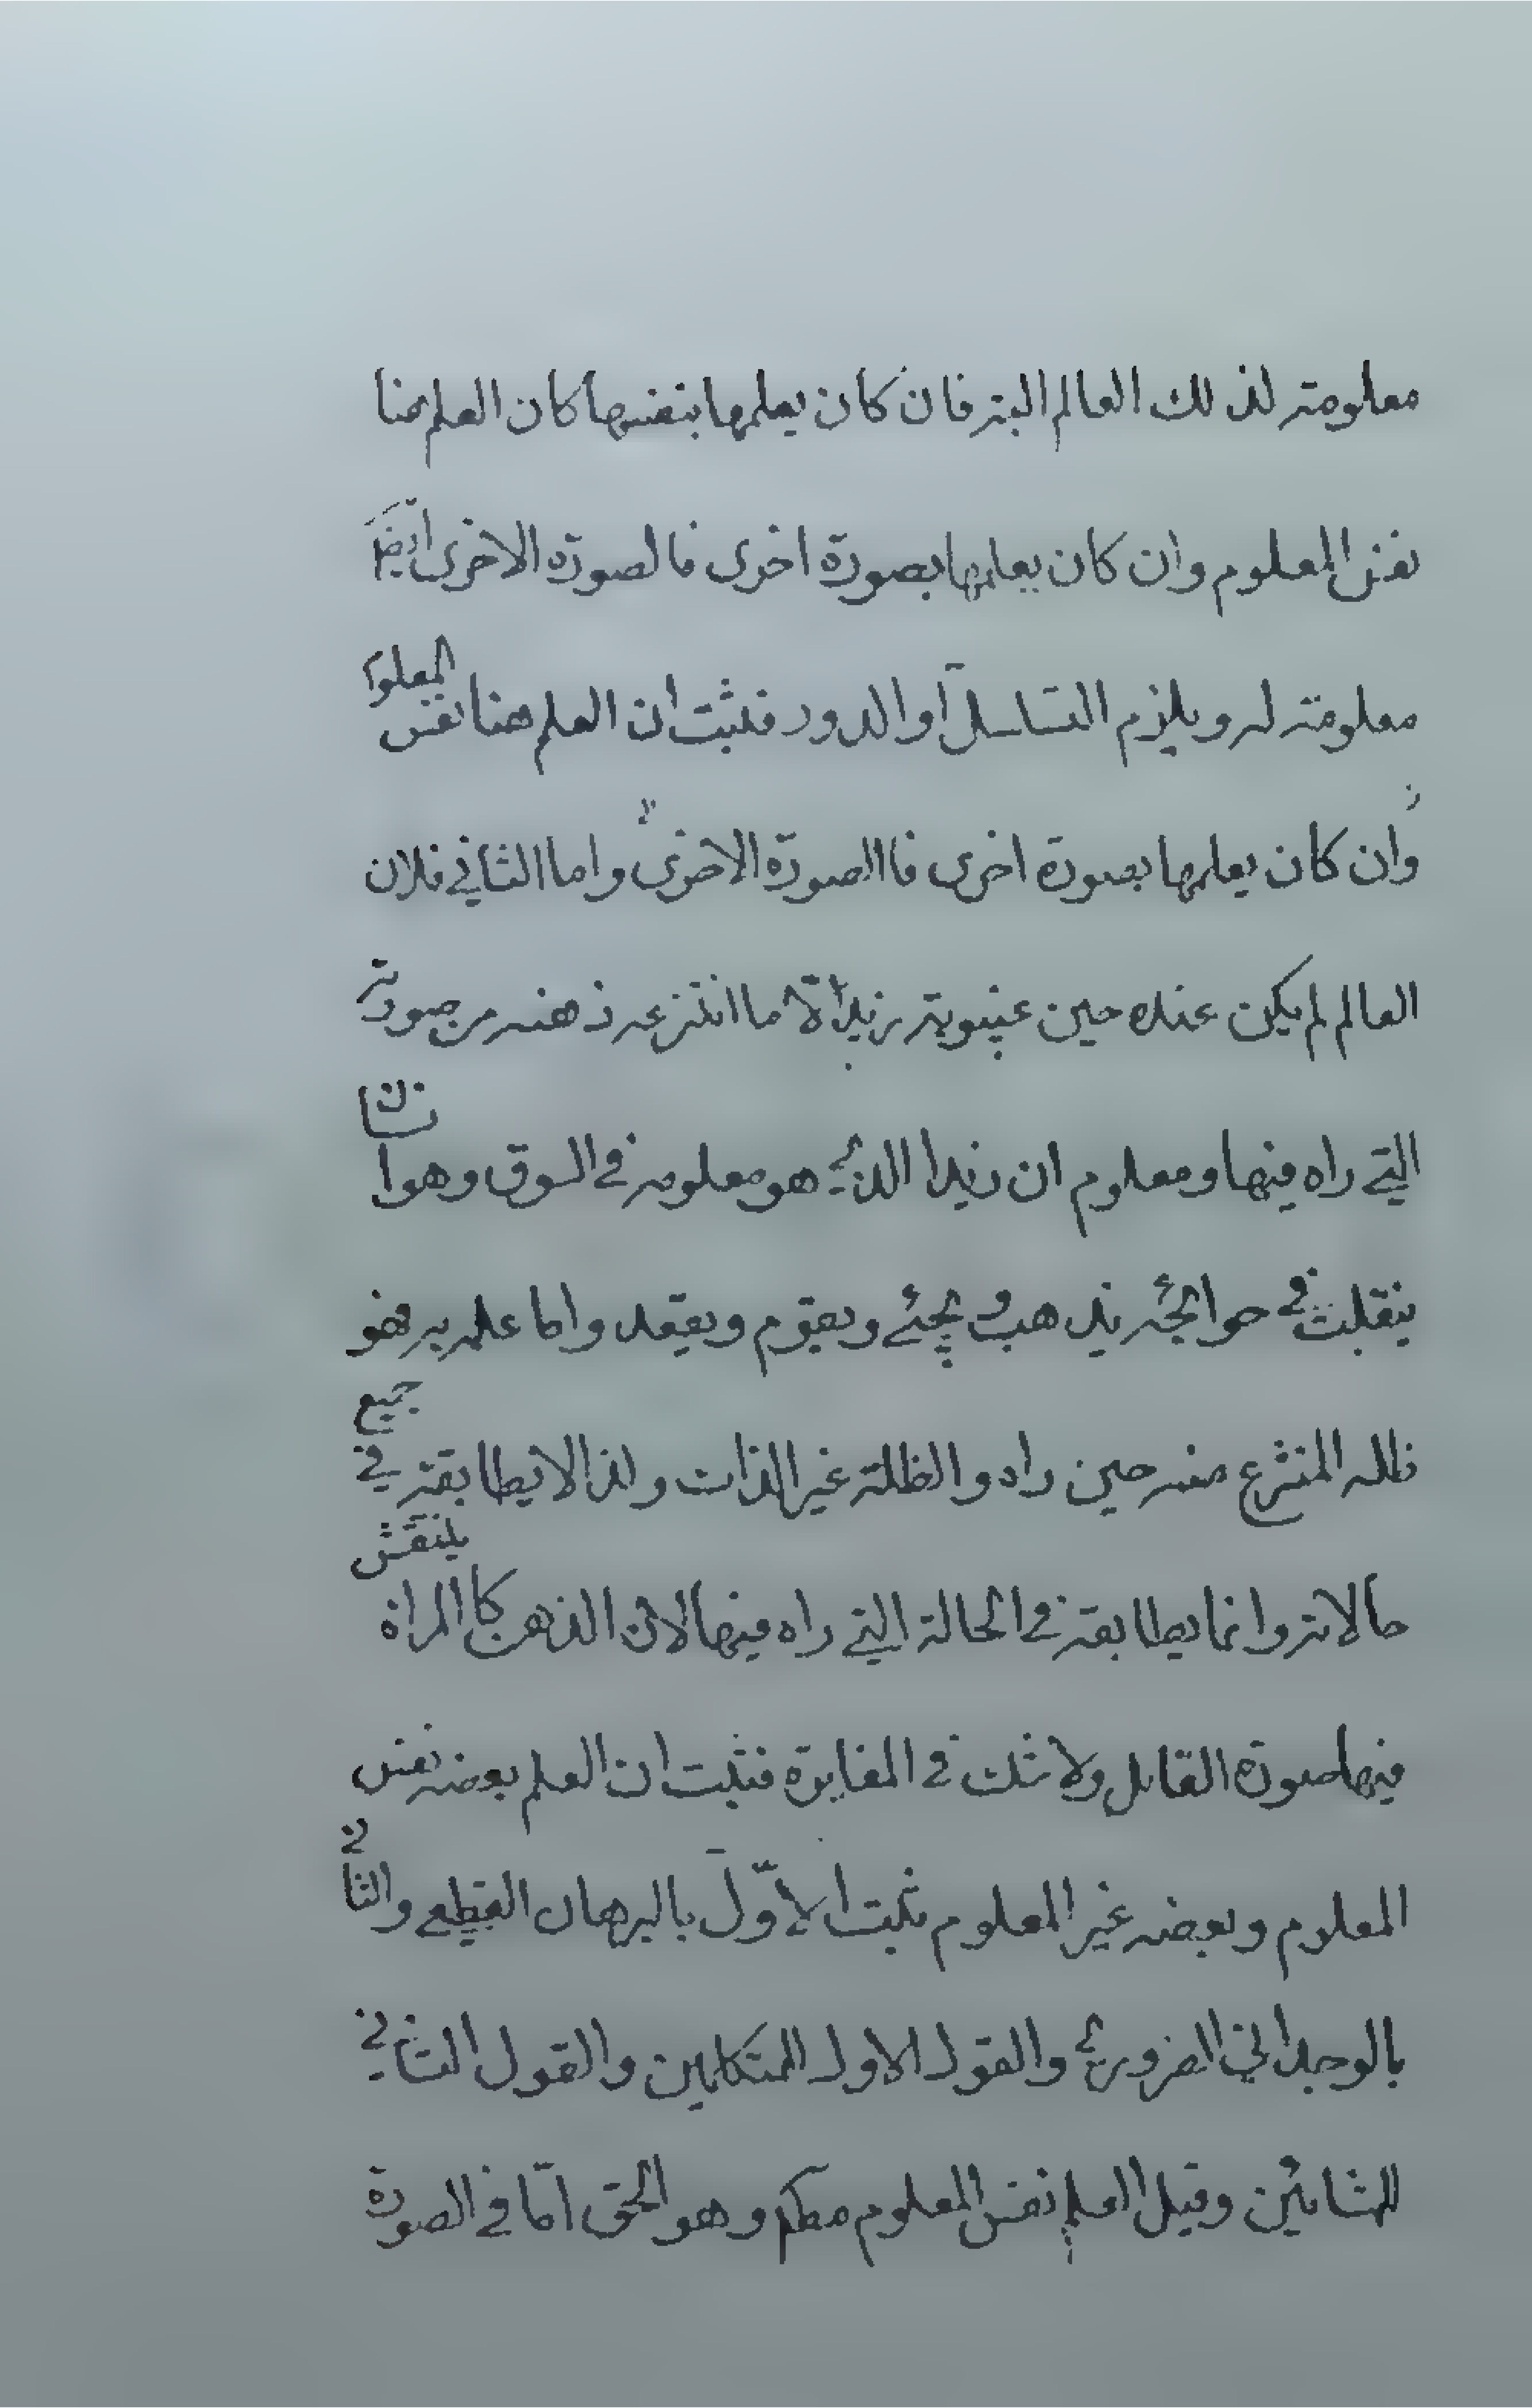 معلومته لذلك العالم البته فان كان يعلمها بنفسها كان العلم هنا
نفس المعلوم وان كان يعلمها بصورة اخرى فالصورة الاخرى ايضا
معلومته له ويلزم التسلسل او الدور فثبت ان العلم هنا نفس المعلوم
وان كان يعلمها بصورة اخرى فاالصورة الاخرى واما الثاني فلان
العالم لم يكن عنده حين غيبوبته زيد الا ما انتزعه ذهنه من صورته
التي راه فيها ومعلوم ان زيدا الذي هو معلومه في السوق وهو انسان
ينقلب في حوائجه يذهب ويجئ ويقوم ويقعد واما علمه به فهو
ظله المنتزع منه حين راه والظلة غير الذات ولذا لا يطابقه في جميع
حالاته وانما يطابقه في الحالة التي راه فيها لان الذهن كالمراة ينتقش
فيها صورة القابل ولا شك في المغايرة فثبت ان العلم بعضه نفس
المعلوم وبعضه غير المعلوم ثبت الاول بالبرهان القطعي والثاني
بالوجداني الضروري والقول الاول المتكلمين والقول الثاني
للمشائين وقيل العلم نفس المعلوم مطلقا وهو الحق امّا في الصورة